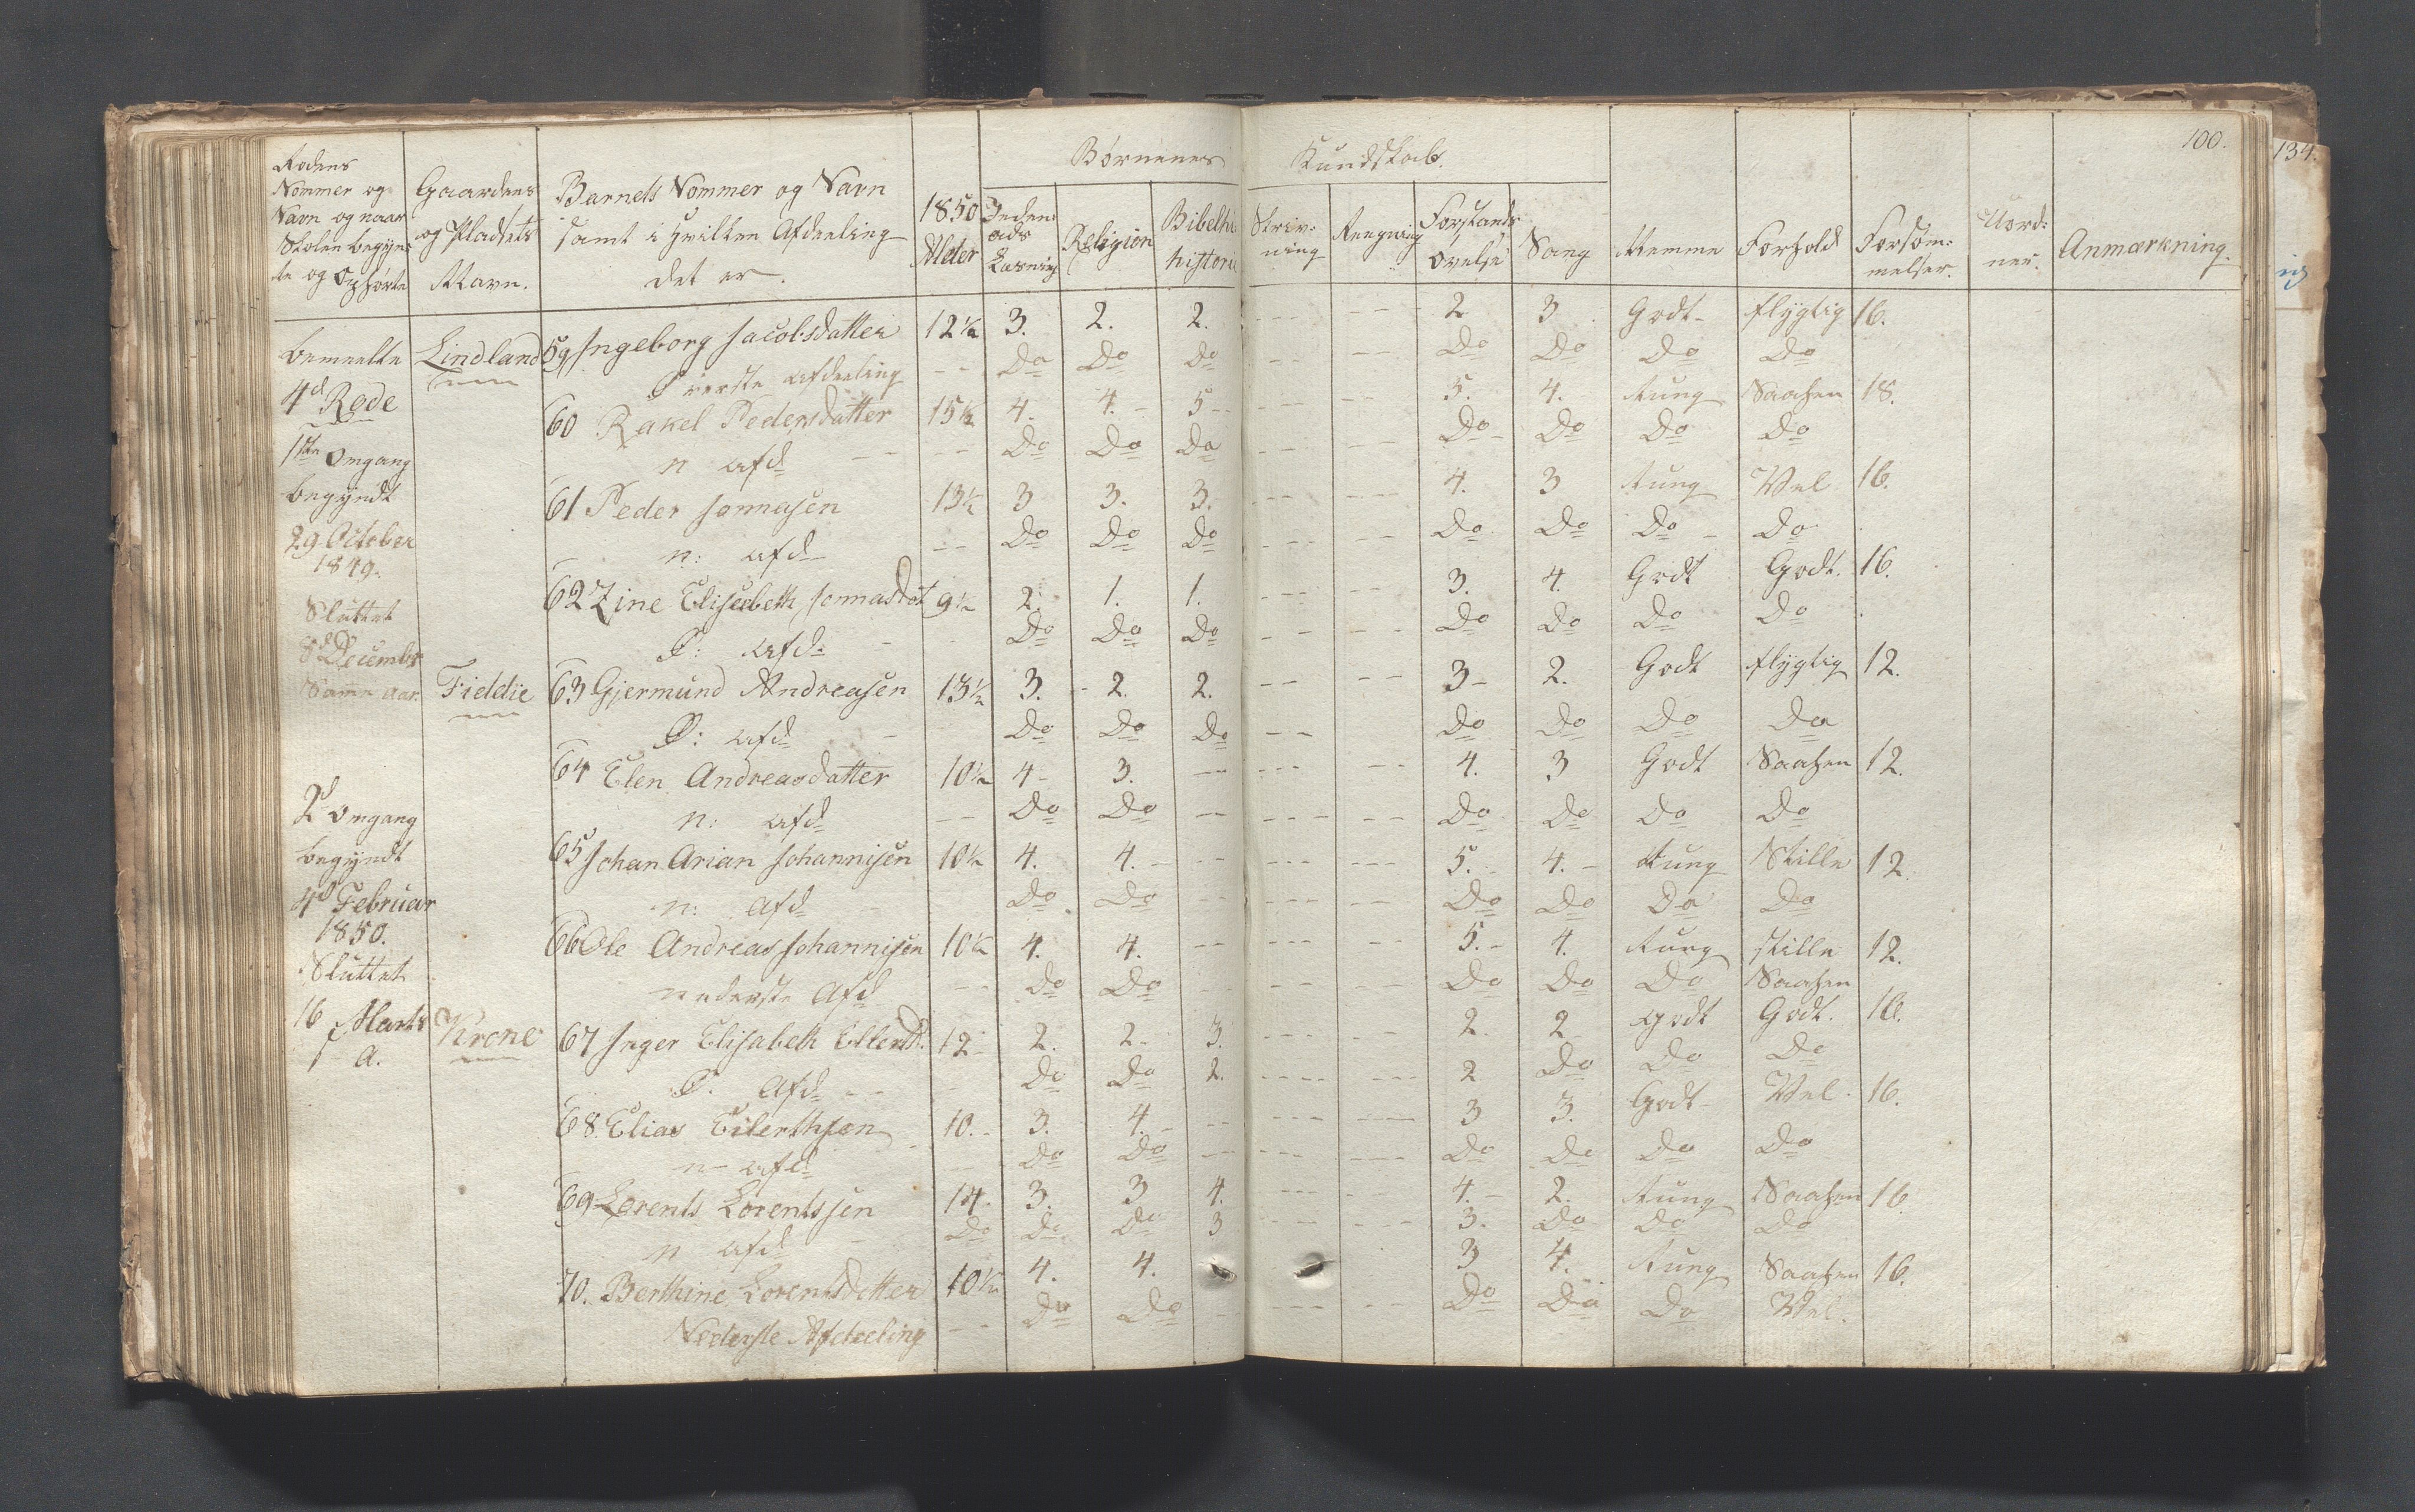 100.
134.
Rodens Nommer og Navn og naar Skolen begynte og Ophørte
Gaardens og Pladsets Navn.
Barnets Nommer og Navn samt i hvilken Afdeeling det er.
1850 Alder
Børnenes Kundskab.
Inden-ads Læsning
Religion
Bibelhi historie
Skriv-ning
Regning
Forstands Øvelse
Sang
Nemme
Forhold
Forsøm-melser.
Uord-ner.
Anmærkning.
bemeelte Lindland 59 Ingeborg Jacobsdatter 12½ 3. 2. 2. --- --- 2 3 Godt flygtig 16.
Øverste Afdeeling -- Do Do Do -- -- Do Do Do Do
4d Rode
60 Rakel Pedersdatter 15½ 4. 4. 5 --- -- 5. 4. tung Saahen 18.
1ste Omgang
n afd -- Do Do Do -- -- Do Do Do Do
begyndt
61 Peder Jonnasen 13½ 3 3. 3. --- --- 4. 3 tung Vel 16.
29 October
n: afd -- Do Do Do --- -- Do Do Do Do
1849.
62 Zine Elisebeth Jonnasdot 9½ 2. 1. 1. --- -- 3. 4. Godt Godt. 16.
Sluttet
Ø: Afd: - Do Do Do -- -- Do Do Do Do
8d December
Samme Aar.
Fiddie 63 Gjermund Andreasen 13½ 3. 2. 2. -- -- 3 2. Godt flygtig 12.
Ø: afd - Do Do Do -- Do Do Do Do
64 Elen Andreasdatter 10½ 4 3. -- --- -- 4. 3 Godt Saahen 12.
2d Omgang
n: afd -- Do Do -- --- -- Do Do Do Do
begyndt
65 Johan Arian Johannisen 10½ 4. 4. -- --- --- 5. 4. tung Stille 12.
4d Februar
n: Afd Do Do -- --- -- Do Do Do Do
1850.
66 Ole Andreas Johannisen 10½ 4. 4. -- --- -- 5. 4. tung stille 12.
Sluttet
nederste Afd -- Do Do -- -- -- Do Do Do Saahen
16 Marts
Krone 67 Inger Elisabeth Ellertd. 12 2. 2. 3. --- - 2. 2 Godt Godt. 16.
A.
Ø. Afd -- Do Do 2. --- --- 2 Do Do Do
68 Elias Eilerthsen 10. 3. 4. -- --- --- 3 3. Godt Vel. 16.
n afd -- Do Do -- --- --- Do Do Do Do
69 Lorents Lorentssen 14. 3. 3 4. --- -- 4. 2. tung Saahen 16
n afd - Do Do Do 3 --- -- 3. Do Do Do
70. Berthine Lorentsdatter 10½ 4. 4. 3 4. tung Saahen 16.
Nederste Afdeeling -- Do Do - --- -- Do Do Do Vel.